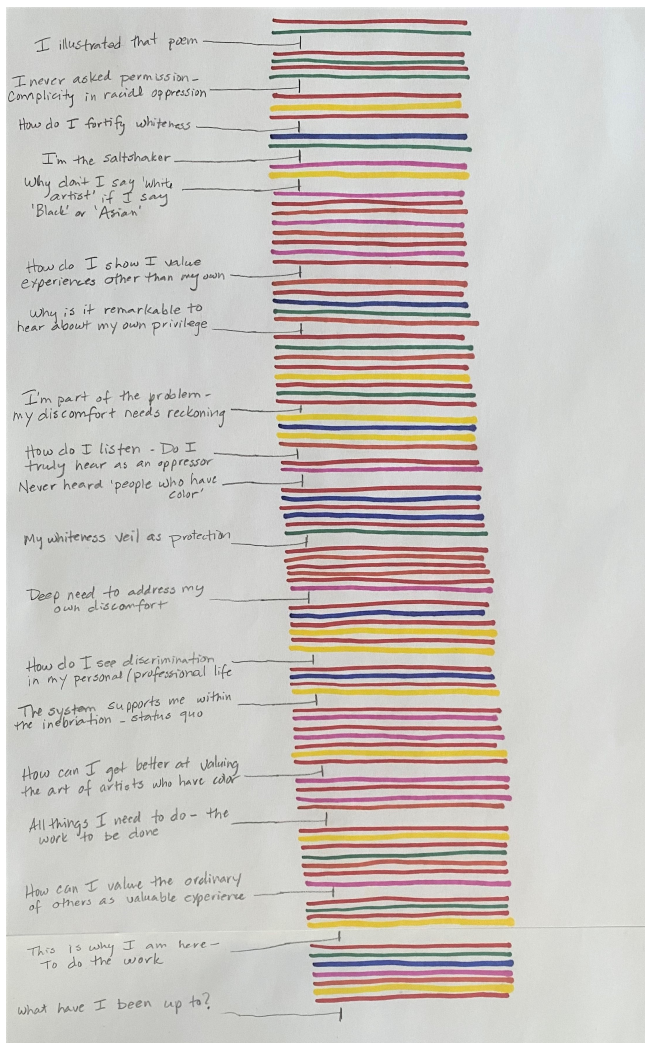 I illustrated that poem
I never asked permission -
complicity in racial oppression
How do I fortify whiteness
I'm the saltshaker
Why don't I say 'white
artist' if I say
'Black' or 'Asian'
How do I show I value
experiences other than my own
Why is it remarkable to
hear about my own privilege
I'm part of the problem -
my discomfort needs reckoning
How do I listen - Do I
truly hear as an oppressor
Never heard 'people who have
color'
My whiteness veil as protection
Deep need to address my
own discomfort
How do I see discrimination
in my personal/professional life
The system supports me within
the inebriation - status quo
How can I get better at valuing
the art of artists who have color
All things I need to do - the
work to be done
How can I value the ordinary
of others as valuable experience
This is why I am here -
To do the work
what have I been up to?